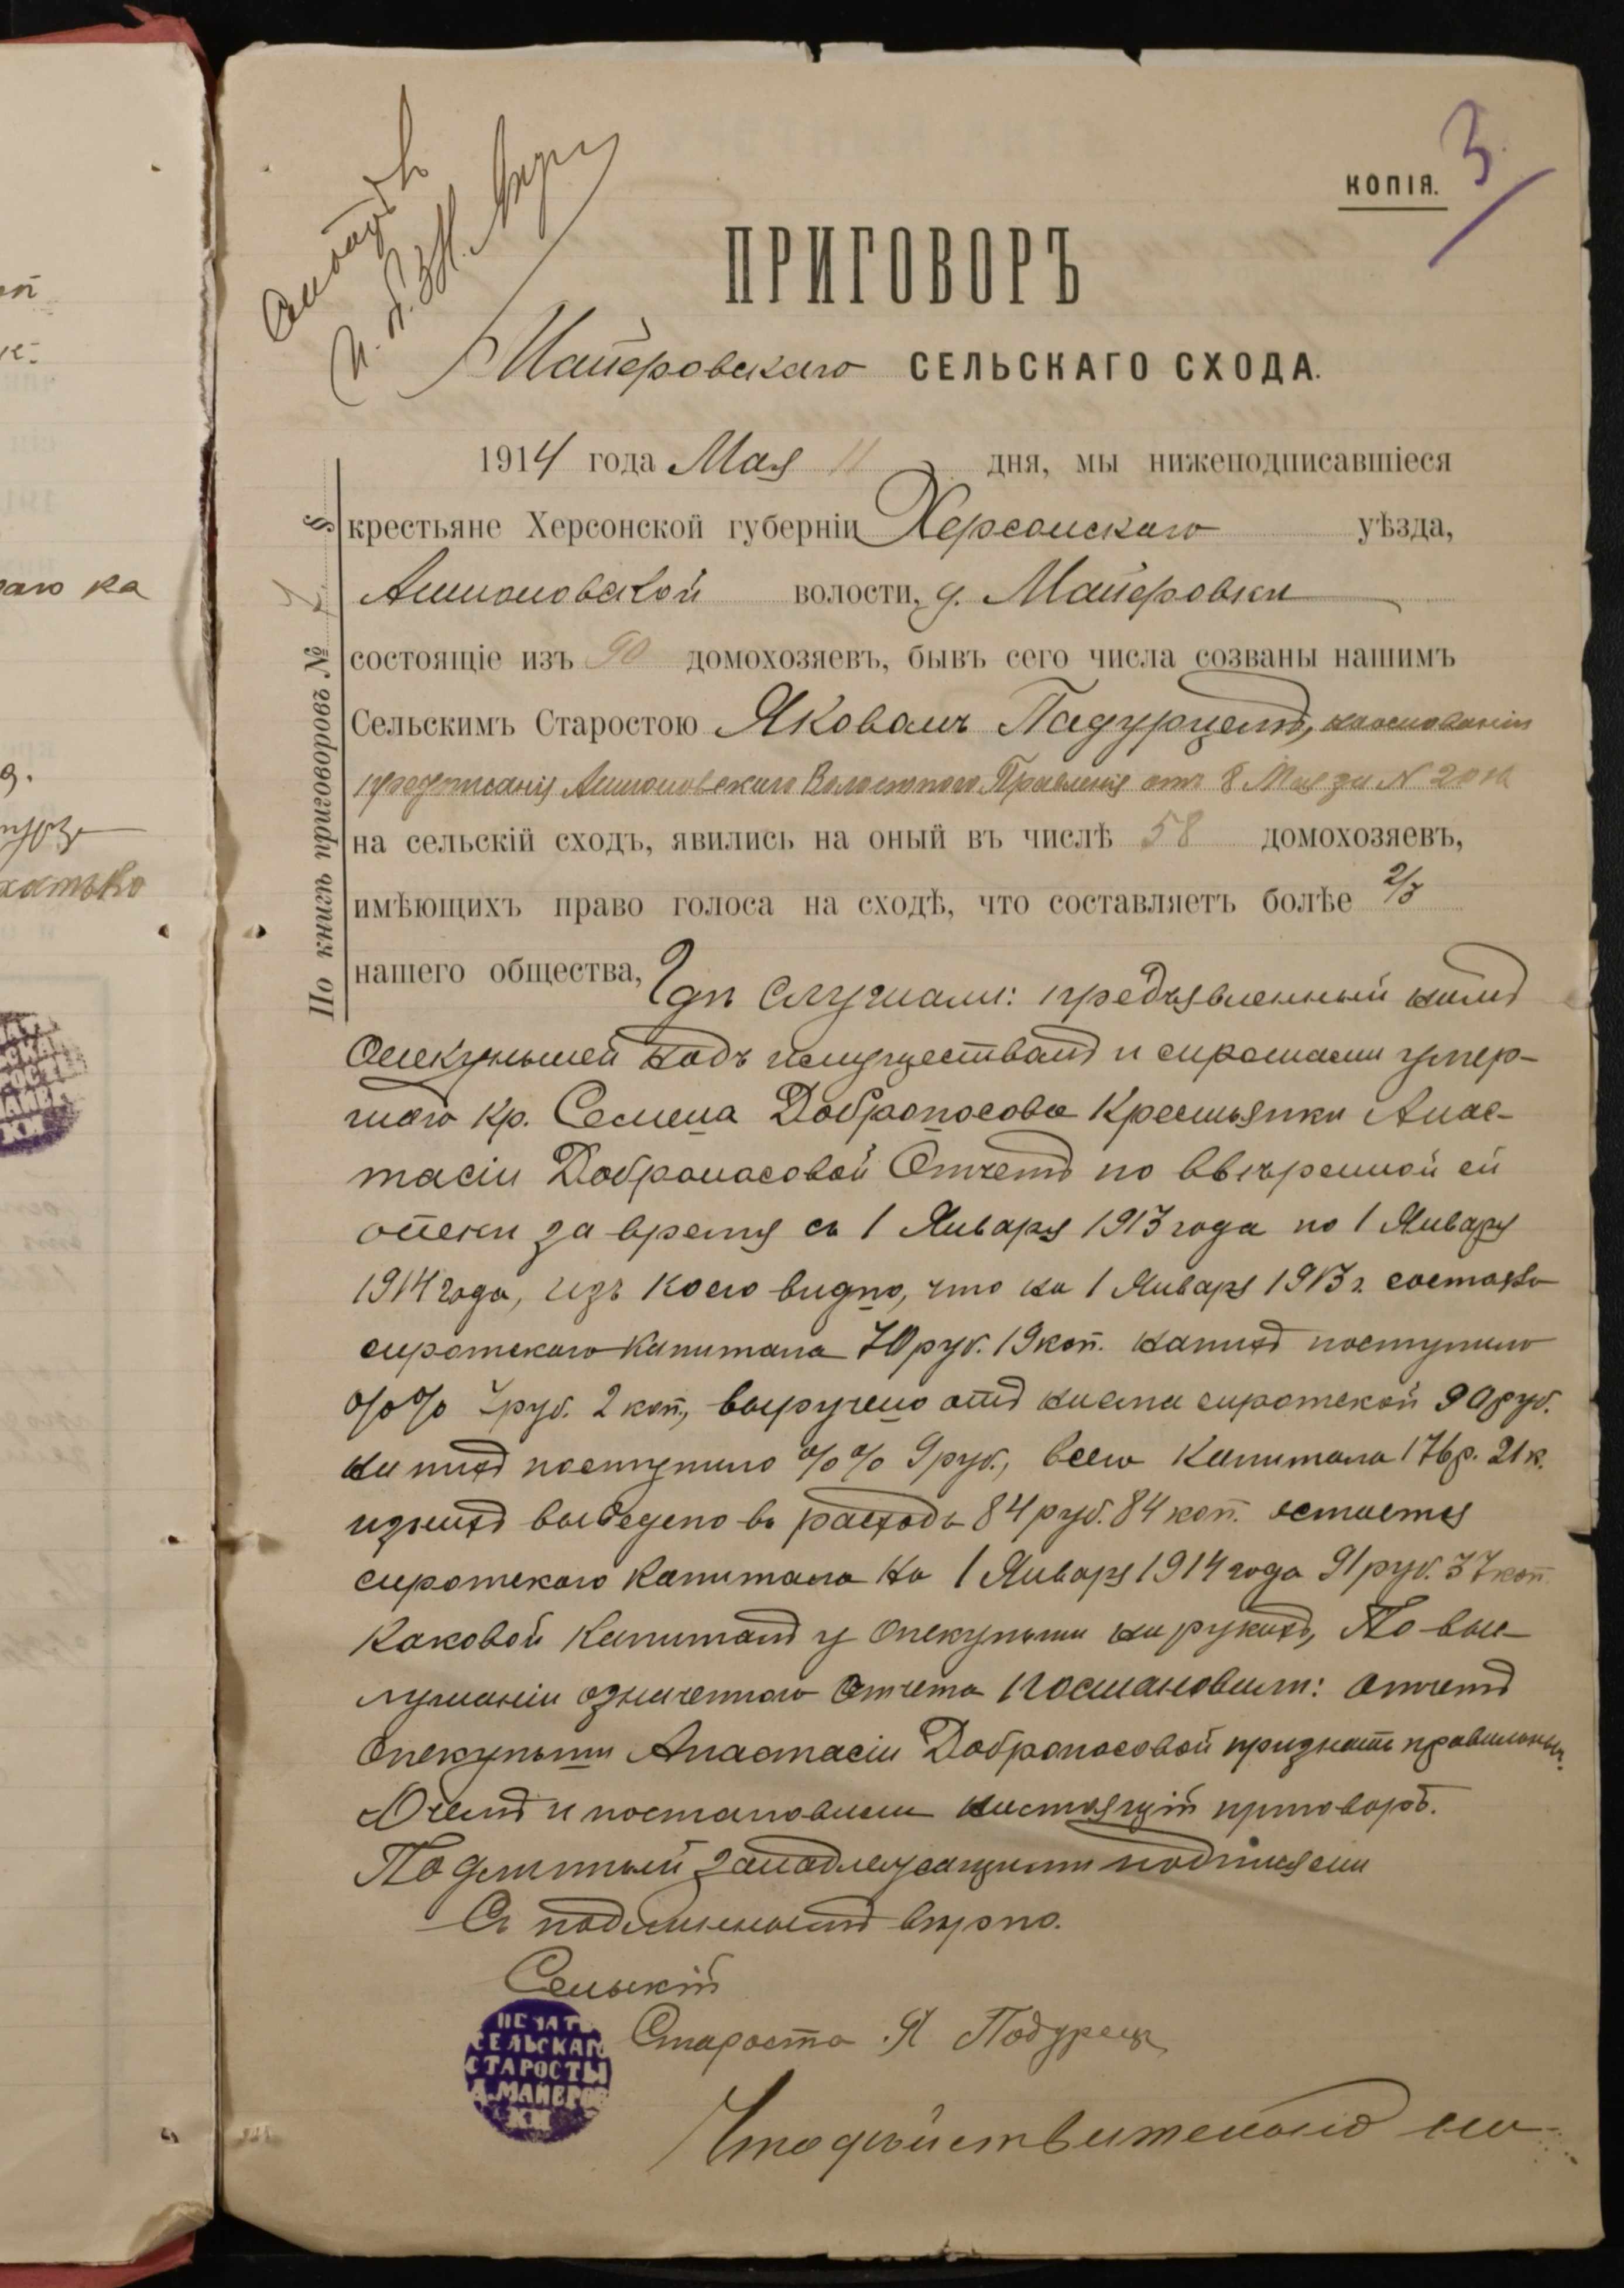 3
КОПІЯ.
ПРИГОВОРЪ
Майеровскаго СЕЛЬСКАГО СХОДА.
1914 года Мая 11 дня, мы нижеподписавшіеся
крестьяне Херсонской губерніи Херсонскаго уѣзда,
волости, д. Майеровки
состоящіе изъ 90 домохозяевъ, бывъ сего числа созваны нашимъ
Сельскимъ Старостою Яковомъ Падурцемъ, наоснованіи
предписанія Волостного Правленія отъ 8 Мая за N
на сельскій сходъ, явились на оный въ числѣ 58 домохозяевъ,
имѣющихъ право голоса на сходѣ, что составляетъ болѣе 2/3
нашего общества, Гдѣ слушали: предъявленный намъ
Опекуншей надъ имуществомъ и сиротами умер-
шаго кр. Семена Доброносова Крестьянки Анас-
тасіи Доброносовой Отчетъ по ввѣренной ей
опеки за время съ 1 Января 1913 года по 1 Января
1914 года, изъ коего видно, что на 1 Января 1913 г. состояло
сиротскаго капитала 70 руб. 19 коп. на нихъ поступило
%% 7 руб. 2 коп., выручено отъ найма сиротской 90 руб.
на нихъ поступило %% 9 руб., всего Капитала 176 р. 21 к.
изъ нихъ выведено въ расходъ 84 руб. 84 коп. остается
сиротскаго капитала на 1 Января 1914 года 91 руб. 37 коп.
каковой капиталъ у опекунши на рукахъ, По выс-
лушаніи означеннаго отчета Постановили: отчетъ
опекунши Анастасіи Доброносовой признать правильнымъ
О чемъ и постановили настоящій приговоръ.
Подлинный за надлежащими подписями
Съ подлиннымъ вѣрно.
Сельскій
Староста Я Подурецъ
ПЕЧАТЬ
СЕЛЬСКАГО
СТАРОСТЫ
Д. МАЙЕРОВ
КИ
По книгѣ приговоровъ № §